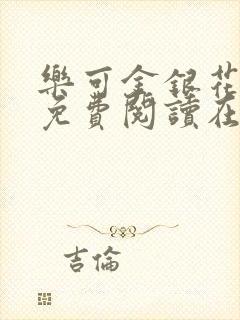 樂可金銀花
免費閱讀在
吉倫